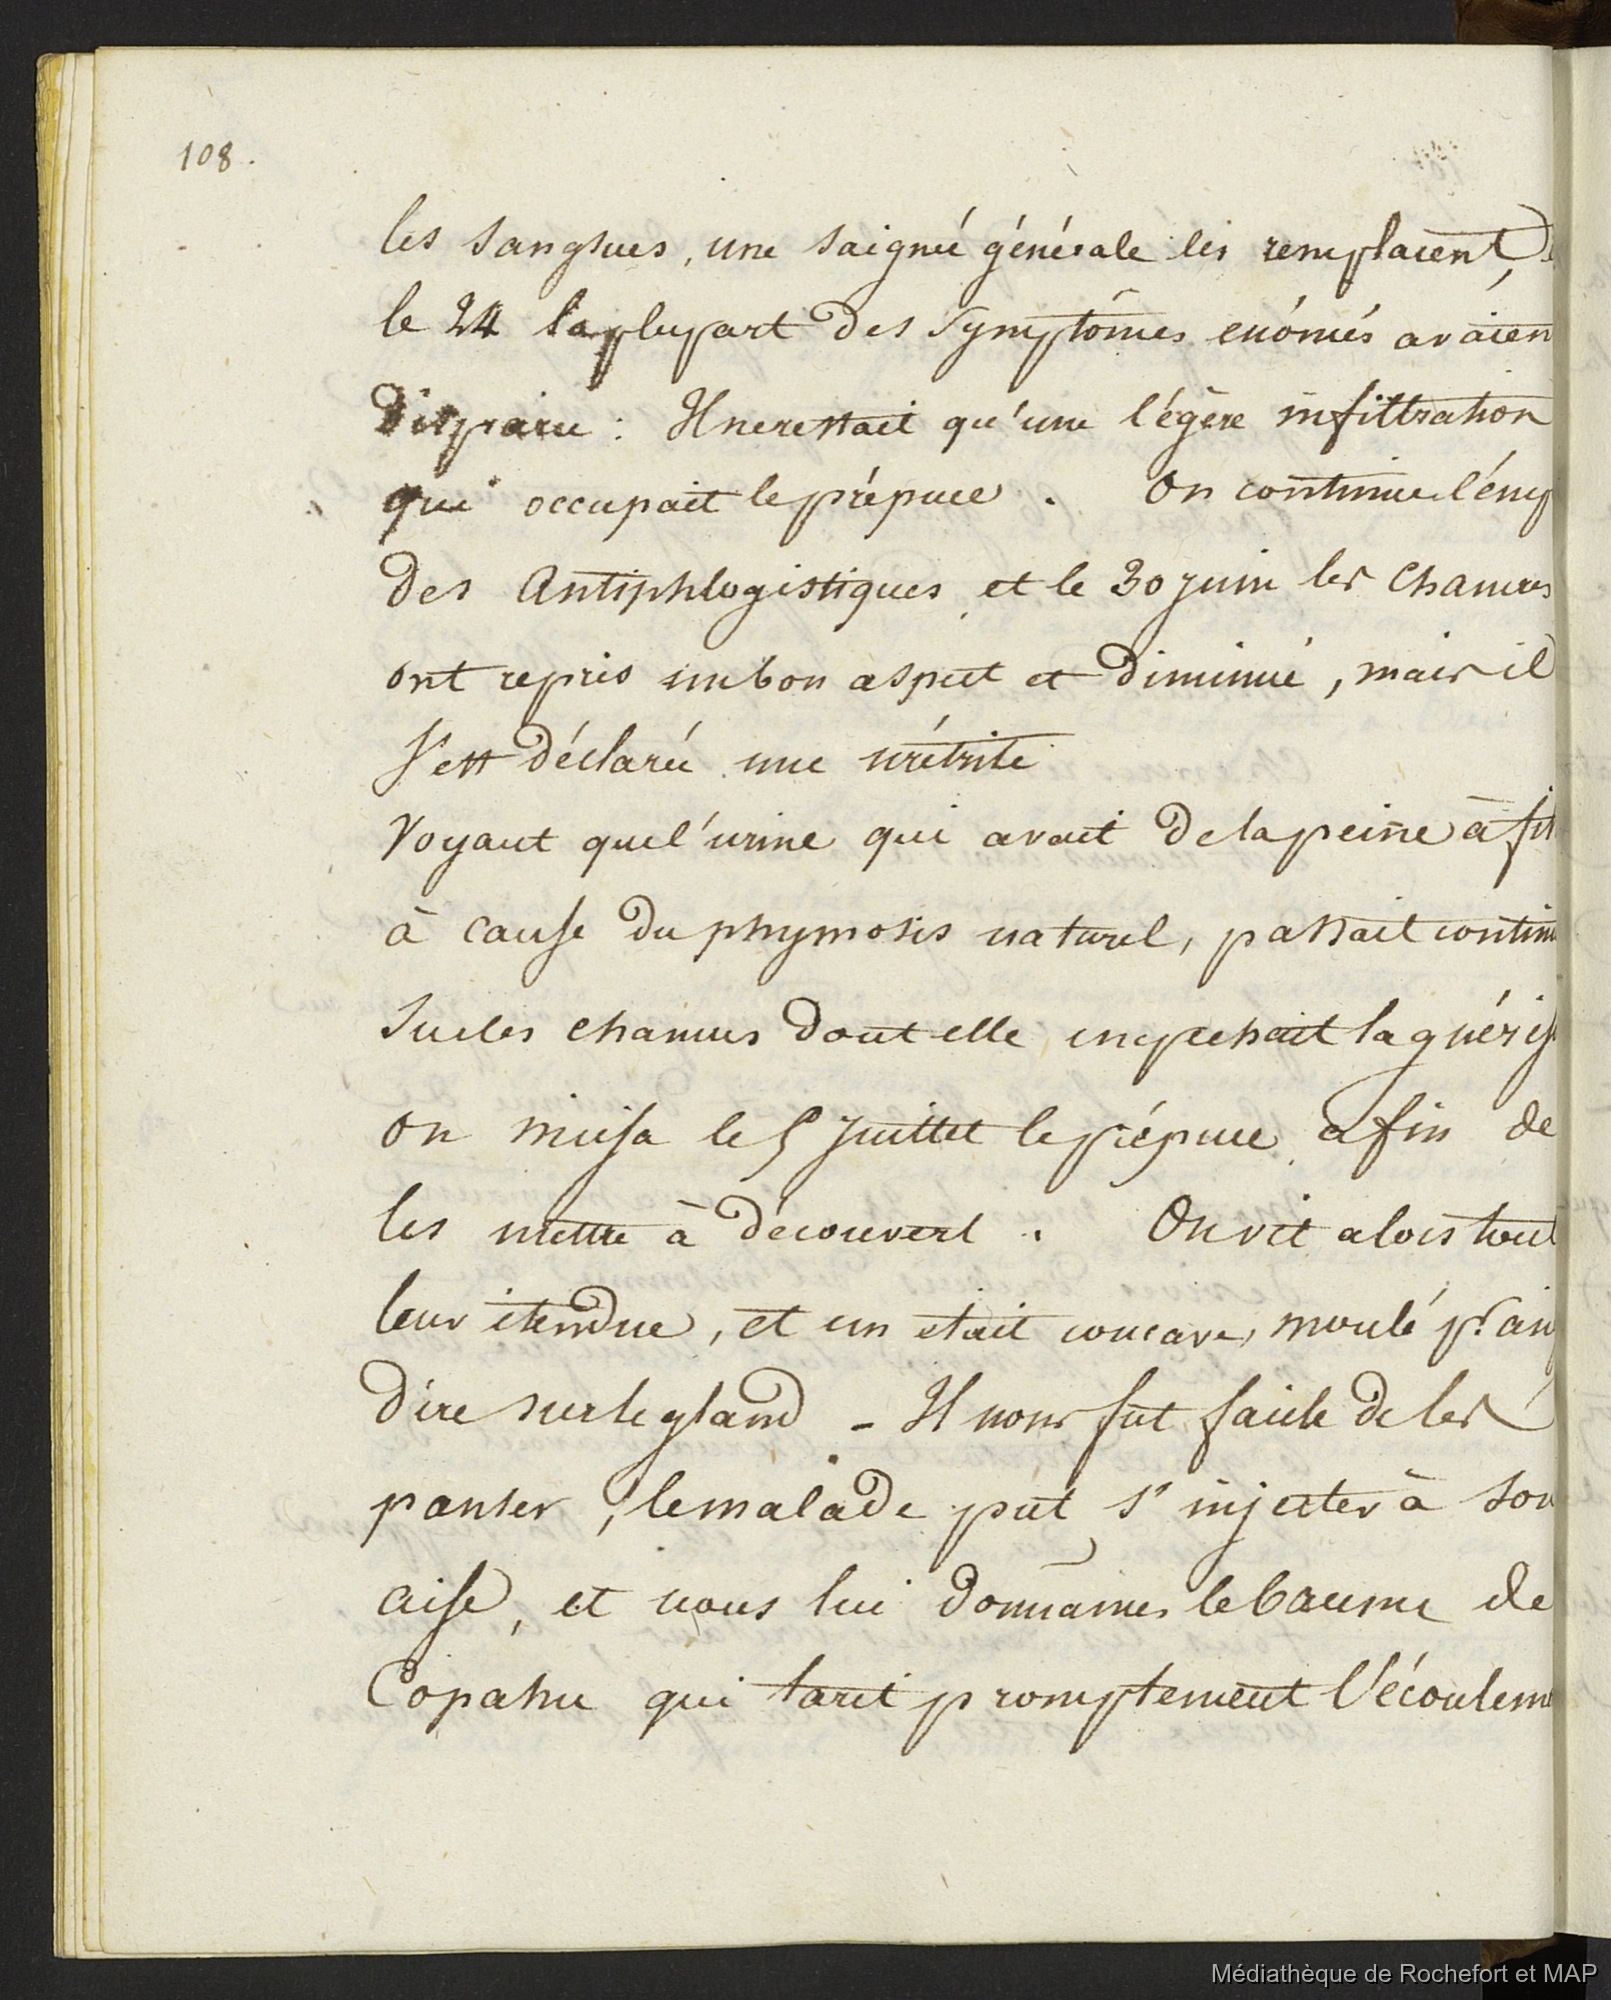 108.
les sangsues, une saigneé générale les remplacent,
le 24 la plupart des symptômes enómés avaien
disparu : Il ne restait qu'une légère infiltration
qui occupait le prépuce. On continue l'emp
des Antiphlogistiques et le 30 juin les chancres
ont repris un bon aspect et diminué, mais il
s'est déclaré une urétrite
Voyant que l'urine qui avait de la peine à fil
à cause du phymosis naturel, passait contin
sur les chancres dont elle empechait la guéris
on incisa le 5 juillet le prépuce afin de
les mettre à découvert. On vit alors tout
leur étendue, et un etait concave, moulé pr. ain
dire sur le gland - Il nous fut facile de les
panser, le malade put s'injecter à son
aise, et nous lui donnâmes le baume de
Copahu qui tarit promptement l'écoulem
Médiathèque de Rochefort et MAP